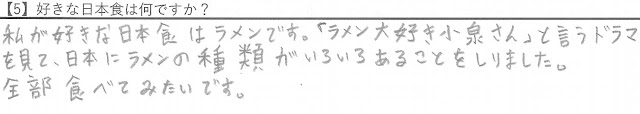 【5】好きな日本食は何ですか？
私が好きな日本食はラメンです。「ラメン大好き小泉さん」と言うドラマ
を見て、日本にラメンの種類がいろいろあることをしりました。
全部食べてみたいです。